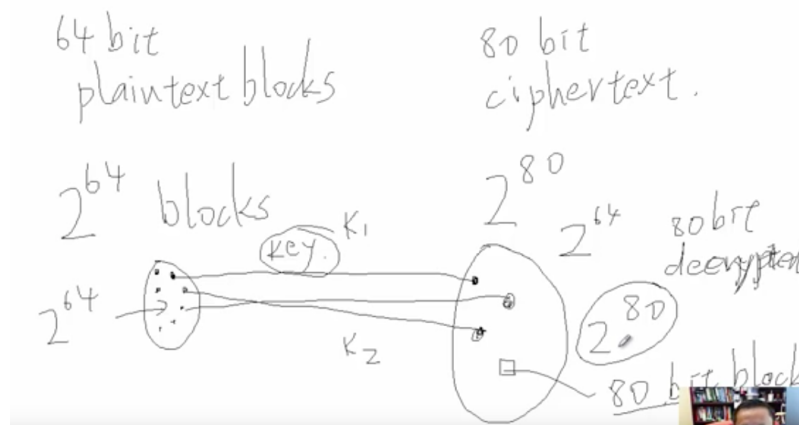 64 bit
plaintext blocks
80 bit
ciphertext.
2^64 blocks
2^80
2^64
80 bit
key.
K1
2^64
K2
2^80
80 bit block